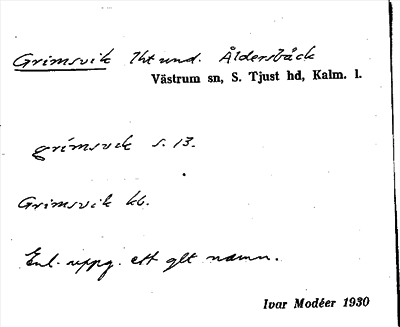 Grimsvik lht und. Åldersbäck
Västrum sn, S. Tjust hd, Kalm. l.
grimsvek s. 13.
Grimsvik kb.
Enl. uppg. ett glt namn.
Ivar Modéer 1930